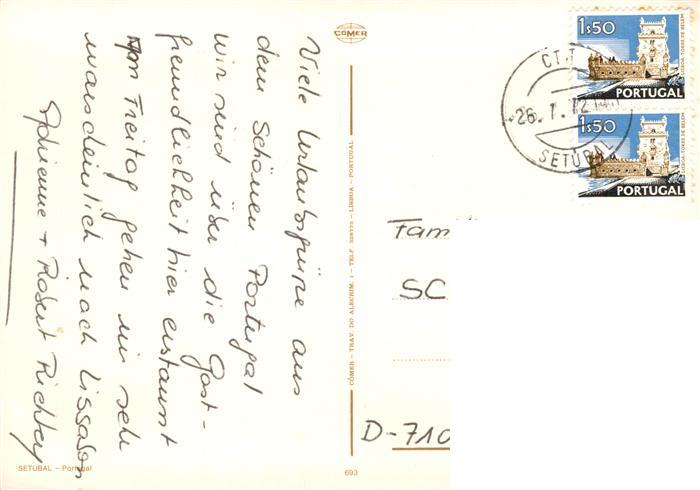 CÓMER
Viele Urlaubsgrüße aus
dem Schönen Portugal
Wir sind über die Gast-
freundlichkeit hier erstaunt
Am Freitag gehen wir sehr
warscheinlich nach Lissabon
+ Robert
SETUBAL – Portugal
CÓMER — TRAV. DO ALECRIM, 1 — TELF. 328775 — LISBOA — PORTUGAL
693
1$50
LISBOA-TORRE DE BELEM
PORTUGAL
1$50
LISBOA-TORRE DE BELEM
PORTUGAL
SETÚBAL
Fam
SC
D-710